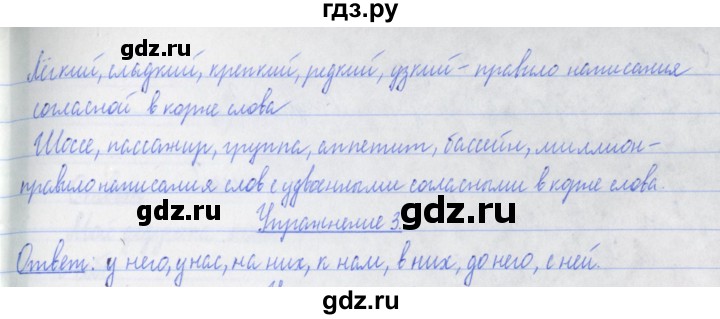 гдз.ру
gdz.ru
gdz.ru
Лёгкий, сладкий, крепкий, редкий, узкий – правило написания
согласной в корне слова
Шоссе, пассажир, группа, аппетит, бассейн, миллион –
правило написания слов с удвоенными согласными в корне слова.
gdz.ru
Упражнение 3.
gdz.ru
Ответ: у него, у нас, на них, к нам, в них, до него, с ней.
gdz.ru